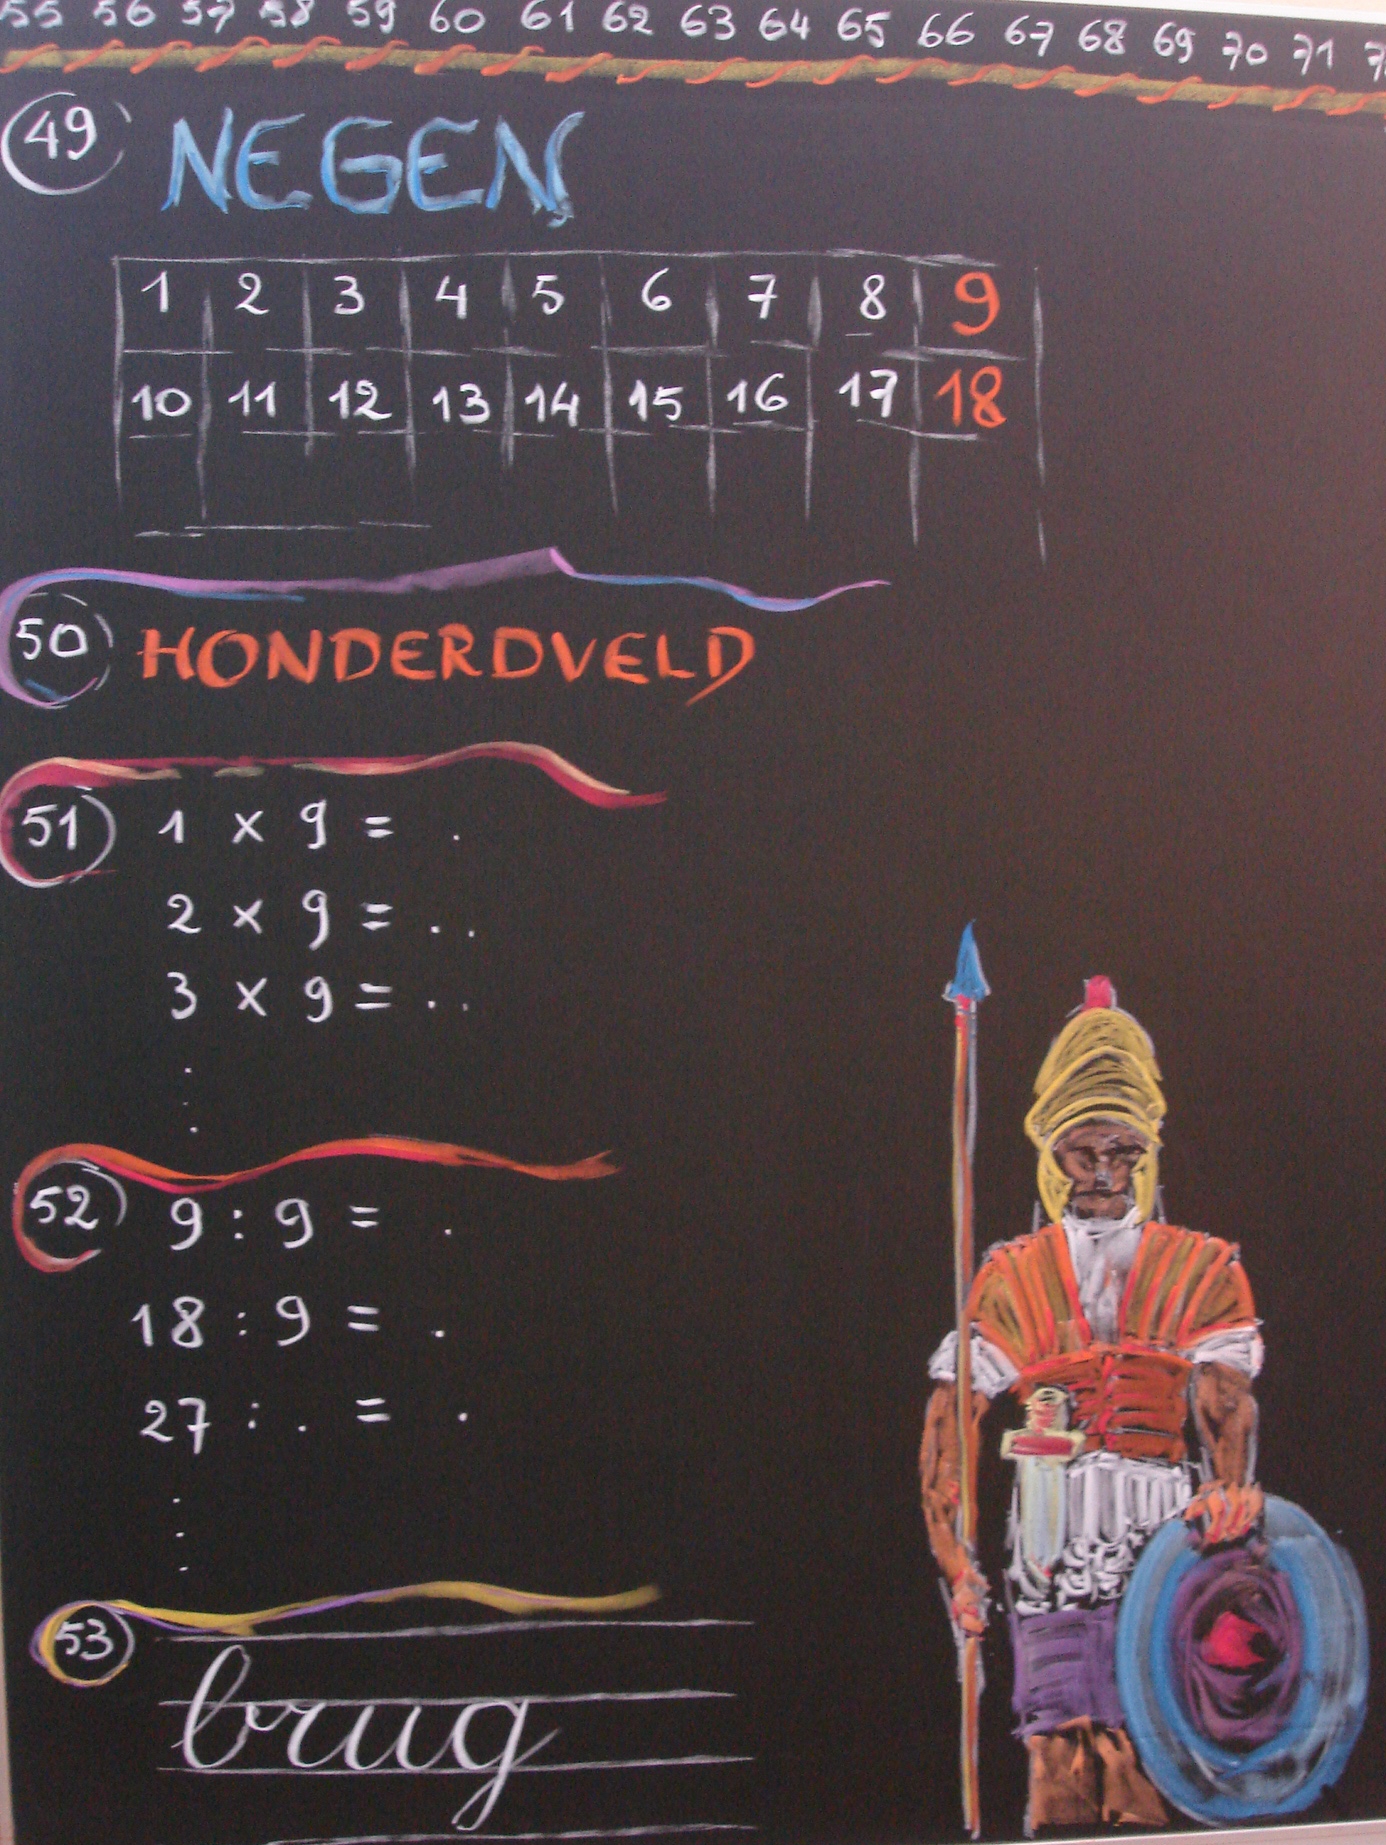 55 56 57 58 59 60 61 62 63 64 65 66 67 68 69 70 71
49 NEGEN
1 2 3 4 5 6 7 8 9
10 11 12 13 14 15 16 17 18
50 HONDERDVELD
51 1 x 9 = .
2 x 9 = . .
3 x 9 = . .
.
.
52 9 : 9 = .
18 : 9 = .
27 : . = .
.
.
.
53 brug